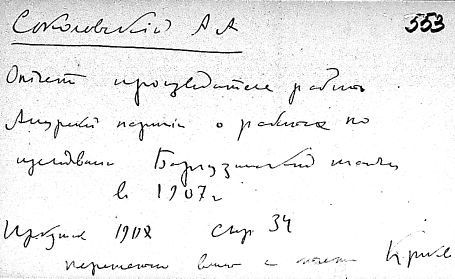 Соколовский А А 553
Отчет производителя работ
Амурской партии о работах по
исследованию Баргузинской тайги
в 1907 г
Иркутск 1908 стр 34
с Крив